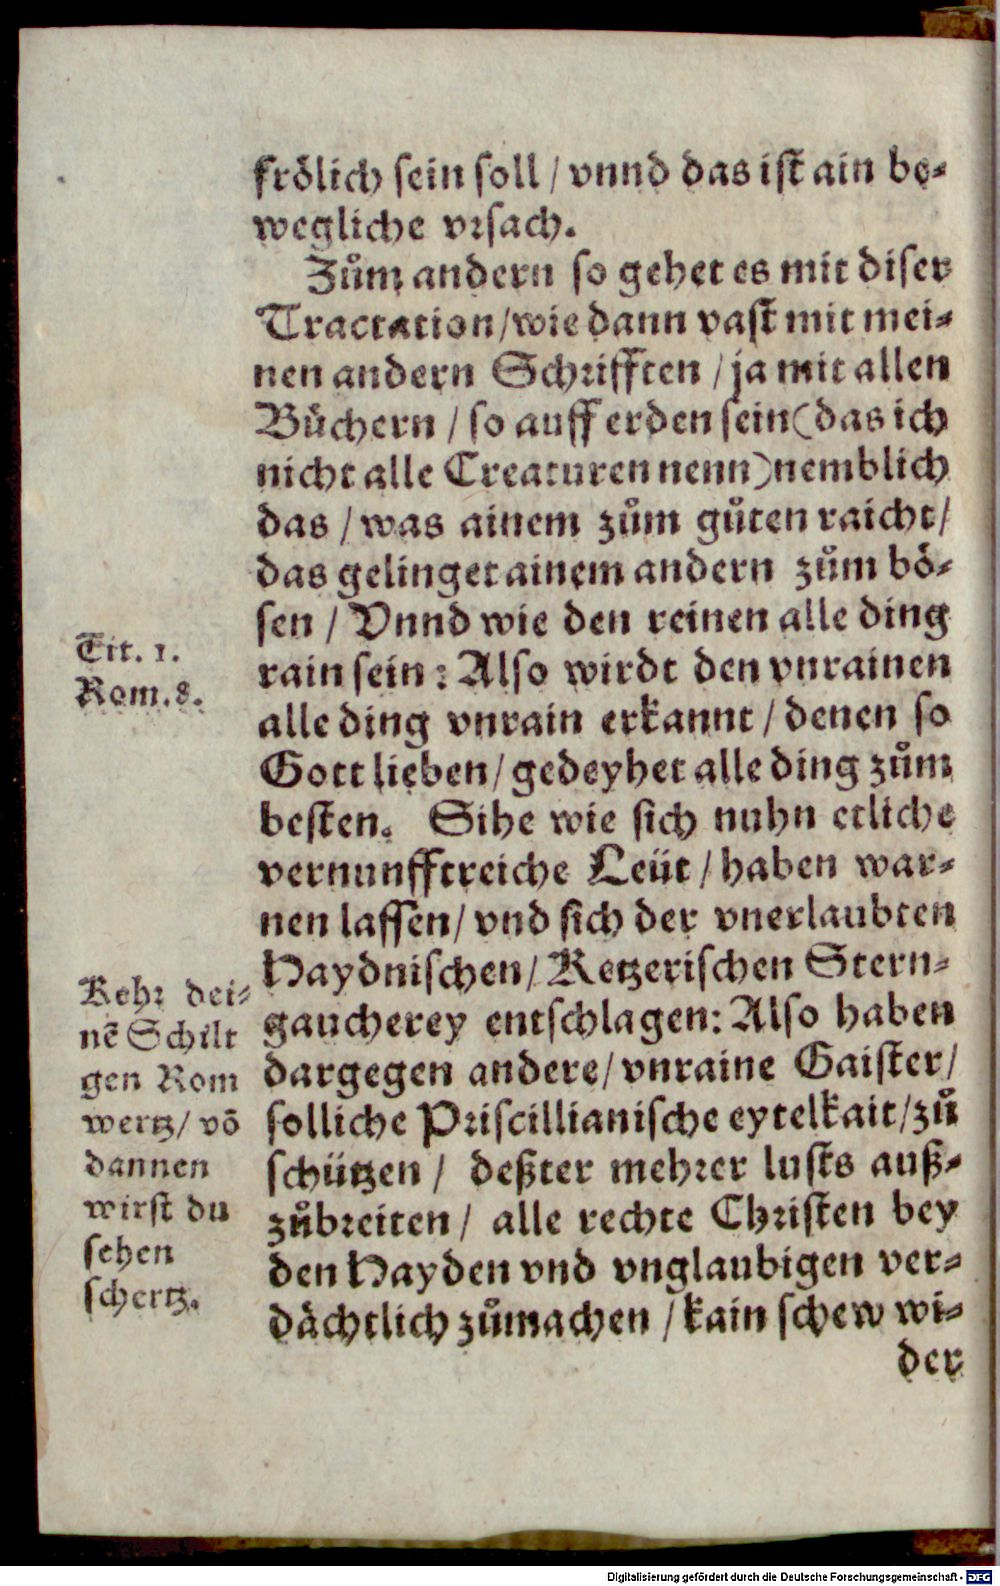 frölich sein soll / vnnd das ist ain be-
wegliche vrsach.
Zům andern so gehet es mit diser
Tractation / wie dann vast mit mei-
nen andern Schrifften / ja mit allen
Bůchern / so auff erden sein (das ich
nicht alle Creaturen nenn) nemblich
das / was ainem zům gůten raicht /
das gelinget ainem andern zům bö-
sen / Vnnd wie den reinen alle ding
Tit. 1.
rain sein : Also wirdt den vnrainen
Rom. 8.
alle ding vnrain erkannt / denen so
Gott lieben / gedeyhet alle ding zům
besten. Sihe wie sich nuhn etliche
vernunfftreiche Leüt / haben war-
nen lassen / vnd sich der vnerlaubten
Haydnischen / Ketzerischen Stern-
gaucherey entschlagen: Also haben
dargegen andere / vnraine Gaister /
solliche Priscillianische eytelkait / zů
schützen / deßter mehrer lusts auß-
zůbreiten / alle rechte Christen bey
den Hayden vnd vnglaubigen ver-
dächtlich zůmachen / kain schew wi-
der
Kehr dei-
nē Schilt
gen Rom
wertz / vō
dannen
wirst du
sehen
schertz.
Digitalisierung gefördert durch die Deutsche Forschungsgemeinschaft - DFG